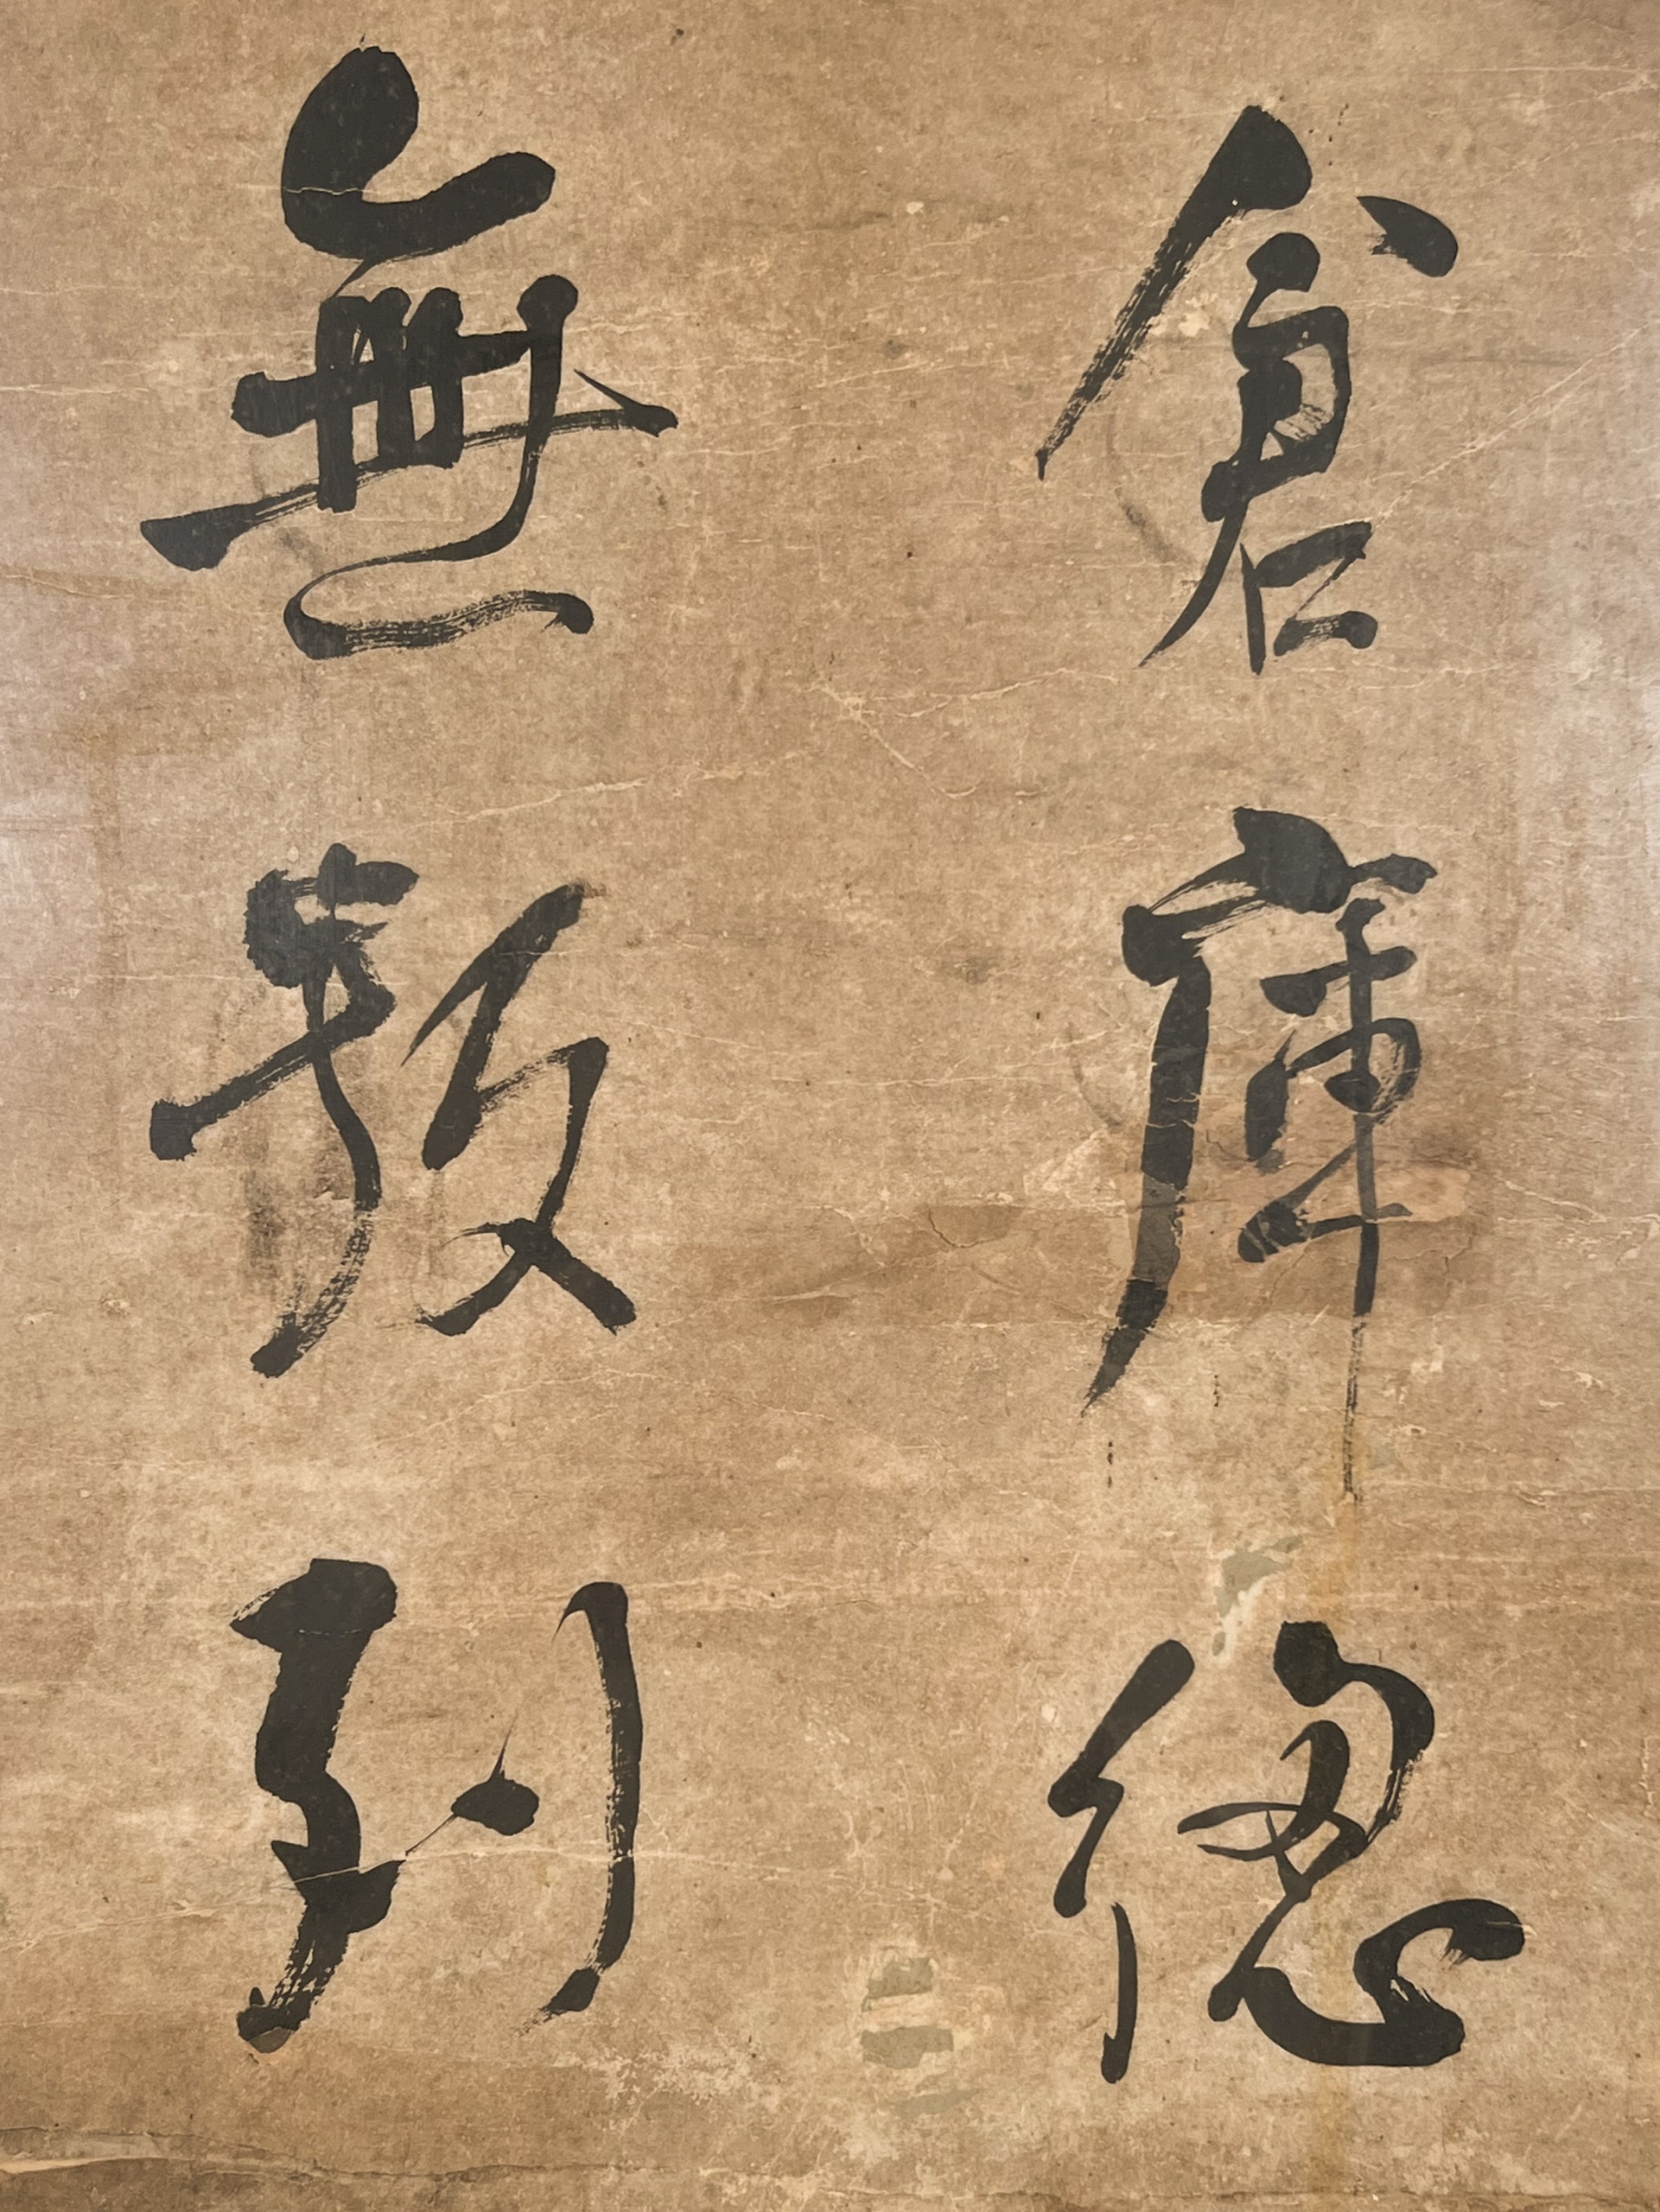 倉庫總
無數到